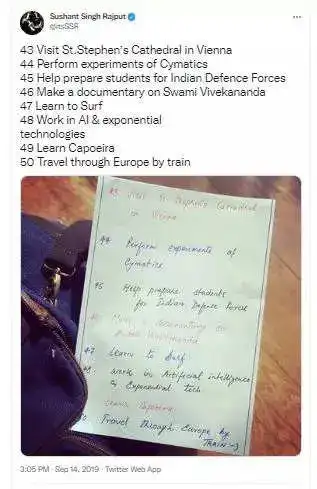 Sushant Singh Rajput
@itsSSR
43 Visit St.Stephen's Cathedral in Vienna
44 Perform experiments of Cymatics
45 Help prepare students for Indian Defence Forces
46 Make a documentary on Swami Vivekananda
47 Learn to Surf
48 Work in AI & exponential
technologies
49 Learn Capoeira
50 Travel through Europe by train
Visit St Stephen's Cathedral
in Vienna
44 Perform experiments of
Cymatics
45 Help prepare students
for Indian Defence Force
Make a documentary on
Vivekananda
47 Learn to Surf
48. work in Artificial intelligence
& Exponential tech
Learn Capoeira
Travel through Europe by
TRAIN :-)
3:05 PM · Sep 14, 2019 · Twitter Web App